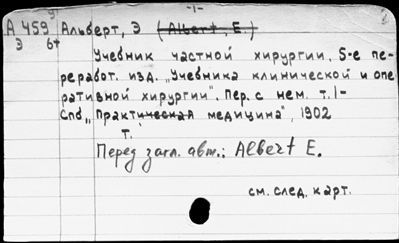 -1-
А 459 Альберт, Э (Albert, E.)
Э 6+
Учебник частной хирургии. 5-е пе-
реработ. изд. „Учебника клинической и опе
ративной хирургии". Пер. с нем. т. 1-
Спб „Практическая медицина", 1902
т.
Перед загл. авт.: Albert E.
см. след. карт.